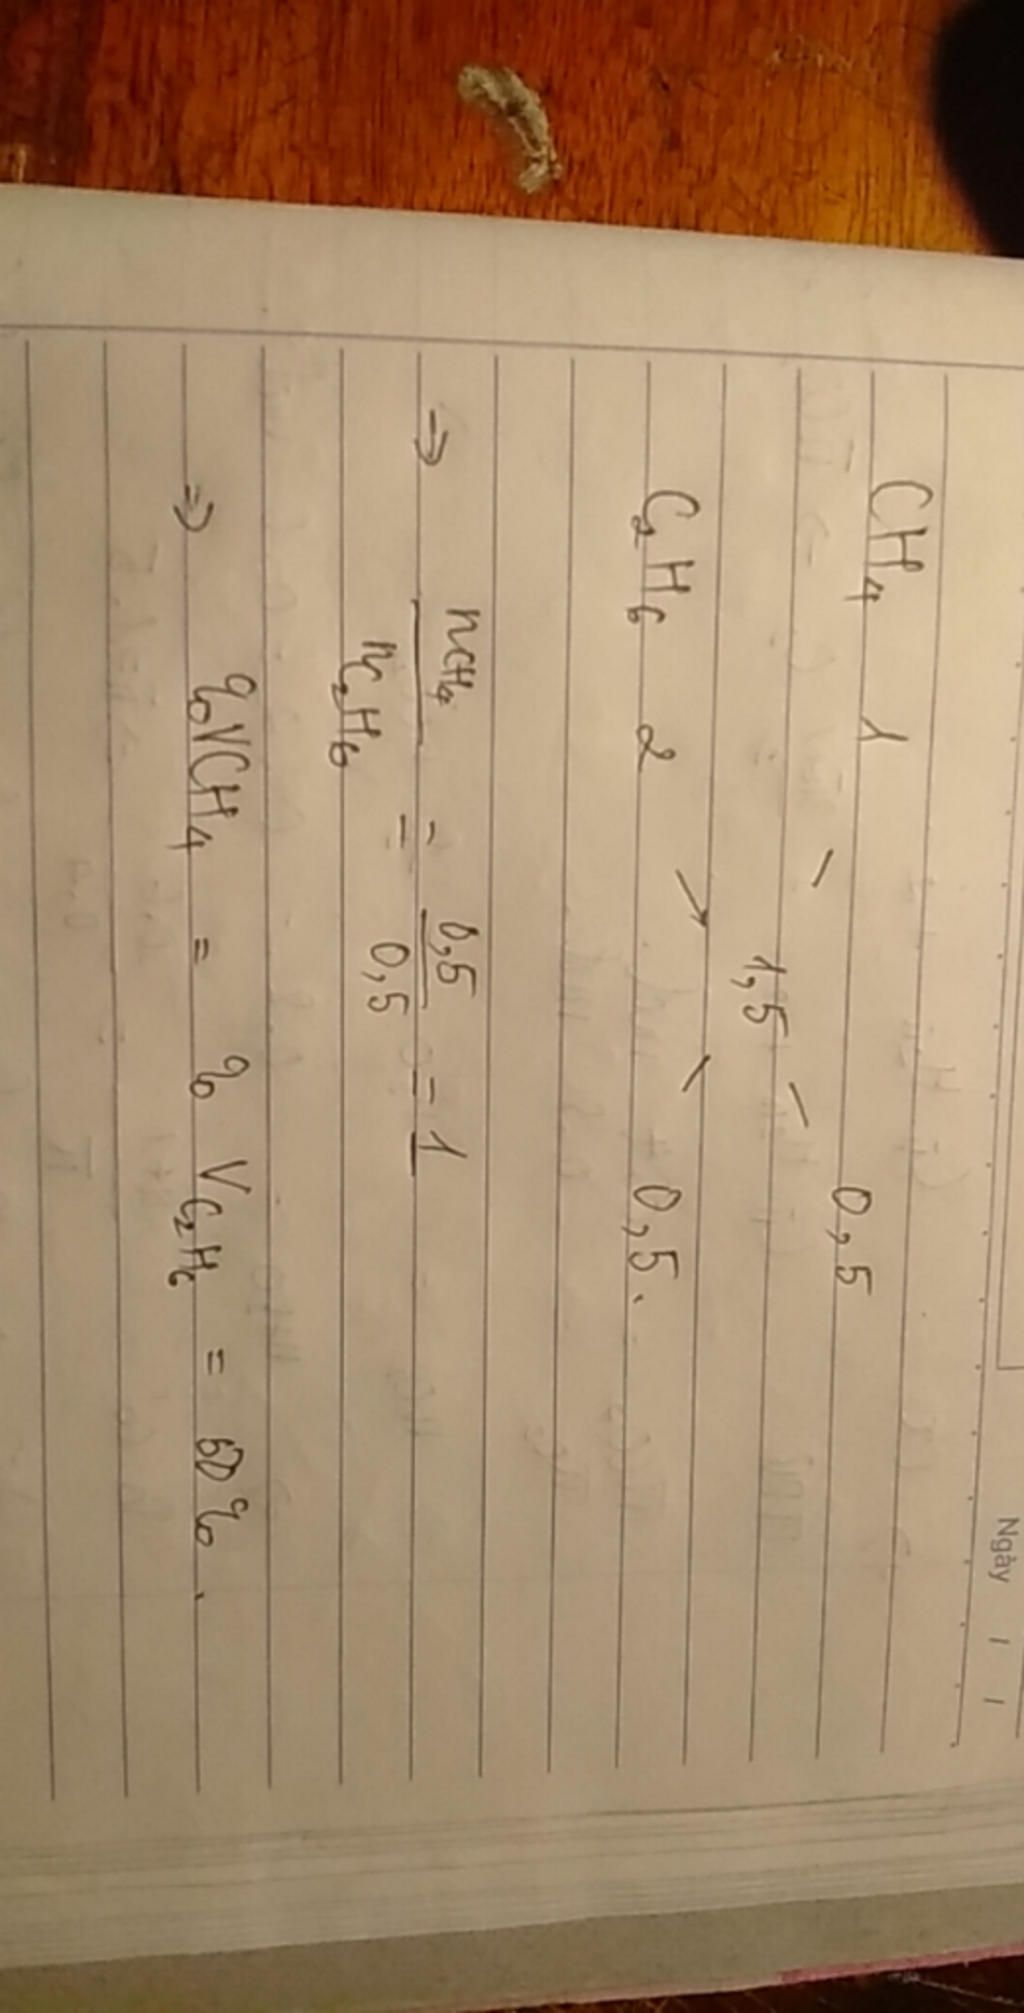 Ngày / /
CH₄ 1 0,5
1,5
C₂H₆ 2 0,5.
→ nCH₄ / nC₂H₆ = 0,5 / 0,5 = 1
⇒ %VCH₄ = % V C₂H₆ = 50%.